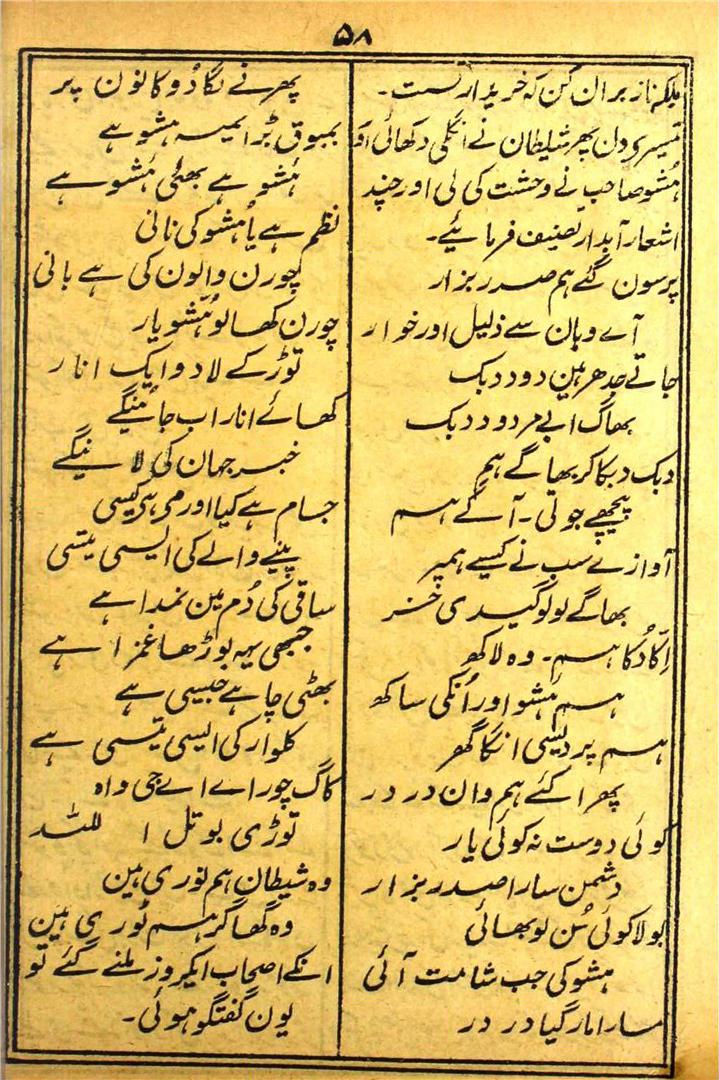 ۵۸
بلکہ ناز بران کن کہ خریدار تست۔
تیسرے دن پھر شیطان نے انگلی دکھائی اور
ہشو صاحب نے وحشت کی لی اور چند
اشعار آبدار تصنیف فرمائیے۔
پرسون گئے ہم صدر بزار
آے وہان سے ذلیل اور خوار
جاتے جدھر ہین دود دبک
بھاگ ابے مردود دبک
دبک دبکا کر بھاگے ہم
پیچھے جوتی۔ آگے ہم
آوازے سب نے کیسے ہمپر
بھاگے لولو گیدی خر
اِکّا دُکّا ہم۔ وہ لاکھ
ہم ہشو اور اُنکی ساکھ
ہم پردیسی انکا گھر
پھرا کئے ہم وان در در
کوئی دوست نہ کوئی یار
دشمن سارا صدر بزار
بولا کوئی سُن لو بھائی
ہشو کی جب شامت آئی
مارا مار گیا در در
پھرنے لگا دُوکانون پر
بمبوق بڑا یہ ہشو ہے
ہُشو ہے بھئی ہُشو ہے
نظم ہے یا ہُشو کی نانی
چورن والون کی ہے بانی
چورن کھا لو ہُشو یار
توڑ کے لا دو ایک انار
کھائے انار اب جائینگے
خبر جہان کی لائینگے
جام ہے کیا اور مے ہے کیسی
پینے والے کی ایسی تیسی
ساقی کی دُم مین نمدا ہے
جبھی یہ بوڑھا غمزا ہے
بھٹی چاہے جیسی ہے
کلوار کی ایسی تیسی ہے
کاگ چوراے اے جی واہ
توڑی بوتل ا للہ
وہ شیطان ہم نوری ہین
وہ گھاگر ہم نوری ہین
انکے اصحاب ایکروز ملنے گئے تو
یون گفتگو ہوئی۔